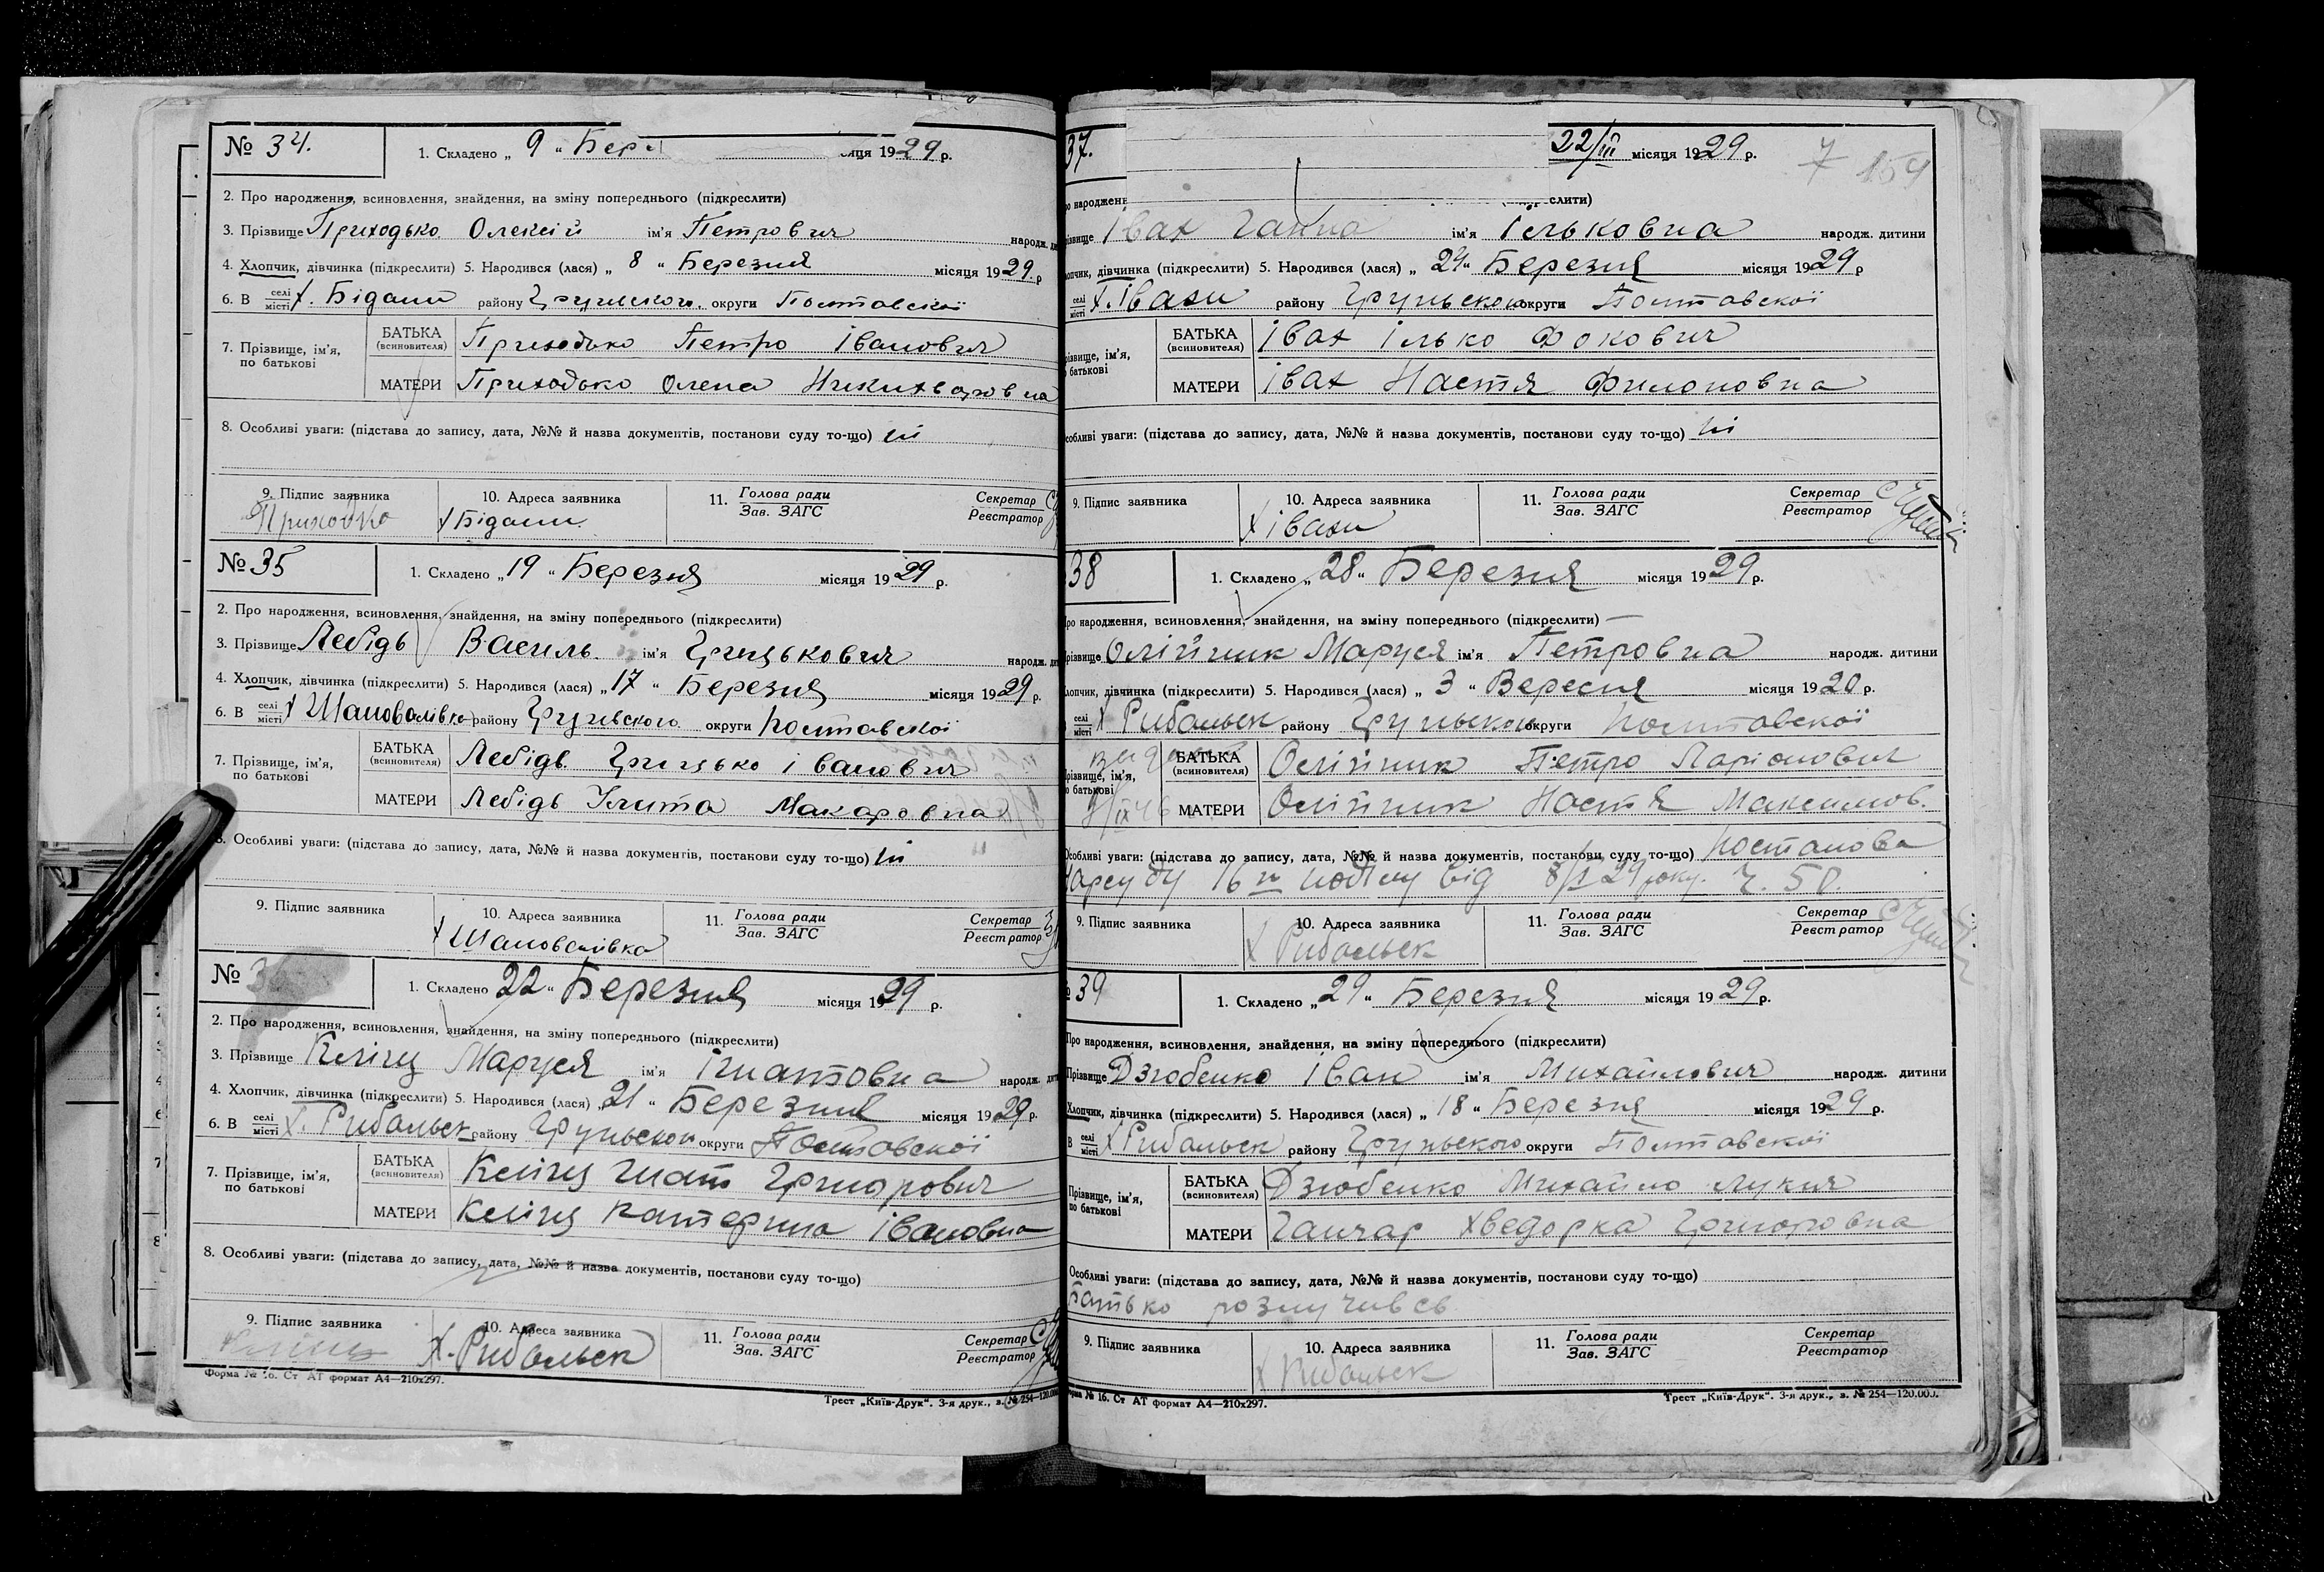 № 34.
1. Складено „ 9 “ Бере
ця 1929 р.
2. Про народження, всиновлення, знайдення, на зміну попереднього (підкреслити)
3. Прізвище Приходько Олексій ім'я Петрович народж. ди
4. Хлопчик, дівчинка (підкреслити) 5. Народився (лася) „ 8 “ Березня місяця 1929 р
6. В селі місті х. Бідани району Грунського округи Полтавської
7. Прізвище, ім'я, по батькові
БАТЬКА (всиновителя) Приходько Петро Іванович
МАТЕРИ Приходько Олена Никихваровна
8. Особливі уваги: (підстава до запису, дата, №№ й назва документів, постанови суду то-що) ні
9. Підпис заявника 10. Адреса заявника 11. Голова ради Зав. ЗАГС Секретар Реєстратор
Приходко х Бідани
№ 35
1. Складено „ 19 “ Березня місяця 1929 р.
2. Про народження, всиновлення, знайдення, на зміну попереднього (підкреслити)
3. Прізвище Лебідь Василь ім'я Грицькович народж. ди
4. Хлопчик, дівчинка (підкреслити) 5. Народився (лася) „ 17 “ Березня місяця 1929 р.
6. В селі місті х Шаповалівка району Грунського округи Полтавської
7. Прізвище, ім'я, по батькові
БАТЬКА (всиновителя) Лебідь Грицько Іванович
МАТЕРИ Лебідь Улита Макаровна
8. Особливі уваги: (підстава до запису, дата, №№ й назва документів, постанови суду то-що) ні
9. Підпис заявника 10. Адреса заявника 11. Голова ради Зав. ЗАГС Секретар Реєстратор
х Шаповалівка
№ 36
1. Складено 22 “ Березня місяця 1929 р.
2. Про народження, всиновлення, знайдення, на зміну попереднього (підкреслити)
3. Прізвище Клінц Маруся ім'я Ігнатовна народж. дити
4. Хлопчик, дівчинка (підкреслити) 5. Народився (лася) „ 21 “ Березня місяця 1929 р.
6. В селі місті х. Рибальск району Грунського округи Полтавської
7. Прізвище, ім'я, по батькові
БАТЬКА (всиновителя) Клінц Гнат Григорович
МАТЕРИ Клінц Катерина Івановна
8. Особливі уваги: (підстава до запису, дата, №№ й назва документів, постанови суду то-що)
9. Підпис заявника 10. Адреса заявника 11. Голова ради Зав. ЗАГС Секретар Реєстратор
х. Рибальск
Форма № 16. Ст АТ формат А4—210х297.
Трест „Київ-Друк“. 3-я друк., з. № 254—120.000
37.
22/III місяця 1929 р.
7 154
ро народжен
слити)
різвище Івах Ганна ім'я Ільковна народж. дитини
лопчик, дівчинка (підкреслити) 5. Народився (лася) „ 29 “ Березня місяця 1929 р
селі місті х. Івахи району Грунського округи Полтавської
різвище, ім'я, о батькові
БАТЬКА (всиновителя) Івах Ілько Фокович
МАТЕРИ Івах Настя Филоновна
собливі уваги: (підстава до запису, дата, №№ й назва документів, постанови суду то-що) ні
9. Підпис заявника 10. Адреса заявника 11. Голова ради Зав. ЗАГС Секретар Реєстратор
х Івахи
38
1. Складено „ 28 “ Березня місяця 1929 р.
ро народження, всиновлення, знайдення, на зміну попереднього (підкреслити)
різвище Олійник Маруся ім'я Петровна народж. дитини
лопчик, дівчинка (підкреслити) 5. Народився (лася) „ 3 “ Вересня місяця 1920 р.
селі місті х Рибальск району Грунського округи Полтавської
різвище, ім'я, о батькові
БАТЬКА (всиновителя) Олійник Петро Ларіонович
МАТЕРИ Олійник Настя Максимов.
Особливі уваги: (підстава до запису, дата, №№ й назва документів, постанови суду то-що) Постанова
Нарсуду 16 від 8/I 29 року. Ч. 50.
9. Підпис заявника 10. Адреса заявника 11. Голова ради Зав. ЗАГС Секретар Реєстратор
х Рибальск
№ 39
1. Складено „ 29 “ Березня місяця 1929 р.
Про народження, всиновлення, знайдення, на зміну попереднього (підкреслити)
Прізвище Дзюбенко Іван ім'я Михайлович народж. дитини
Хлопчик, дівчинка (підкреслити) 5. Народився (лася) „ 18 “ Березня місяця 1929 р.
В селі місті х Рибальск району Грунського округи Полтавської
Прізвище, ім'я, по батькові
БАТЬКА (всиновителя) Дзюбенко Михайло Лукич
МАТЕРИ Ганчар Хведорка Григоровна
Особливі уваги: (підстава до запису, дата, №№ й назва документів, постанови суду то-що)
Батько розлучивсь
9. Підпис заявника 10. Адреса заявника 11. Голова ради Зав. ЗАГС Секретар Реєстратор
х Рибальск
орма № 16. Ст АТ формат А4—210х297.
Трест „Київ-Друк“. 3-я друк., з. № 254—120.000.